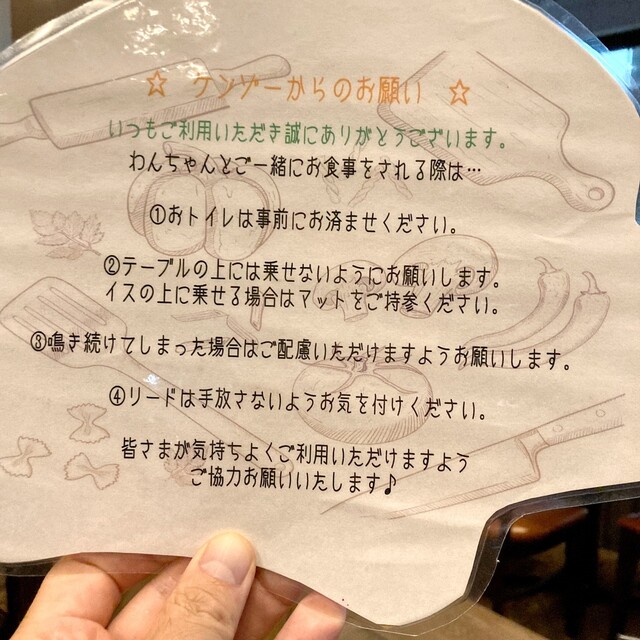 ☆ ケンゾーからのお願い ☆
いつもご利用いただき誠にありがとうございます。
わんちゃんとご一緒にお食事をされる際は…
①おトイレは事前にお済ませください。
②テーブルの上には乗せないようにお願いします。
イスの上に乗せる場合はマットをご持参ください。
③鳴き続けてしまった場合はご配慮いただけますようお願いします。
④リードは手放さないようお気を付けください。
皆さまが気持ちよくご利用いただけますよう
ご協力お願いいたします♪